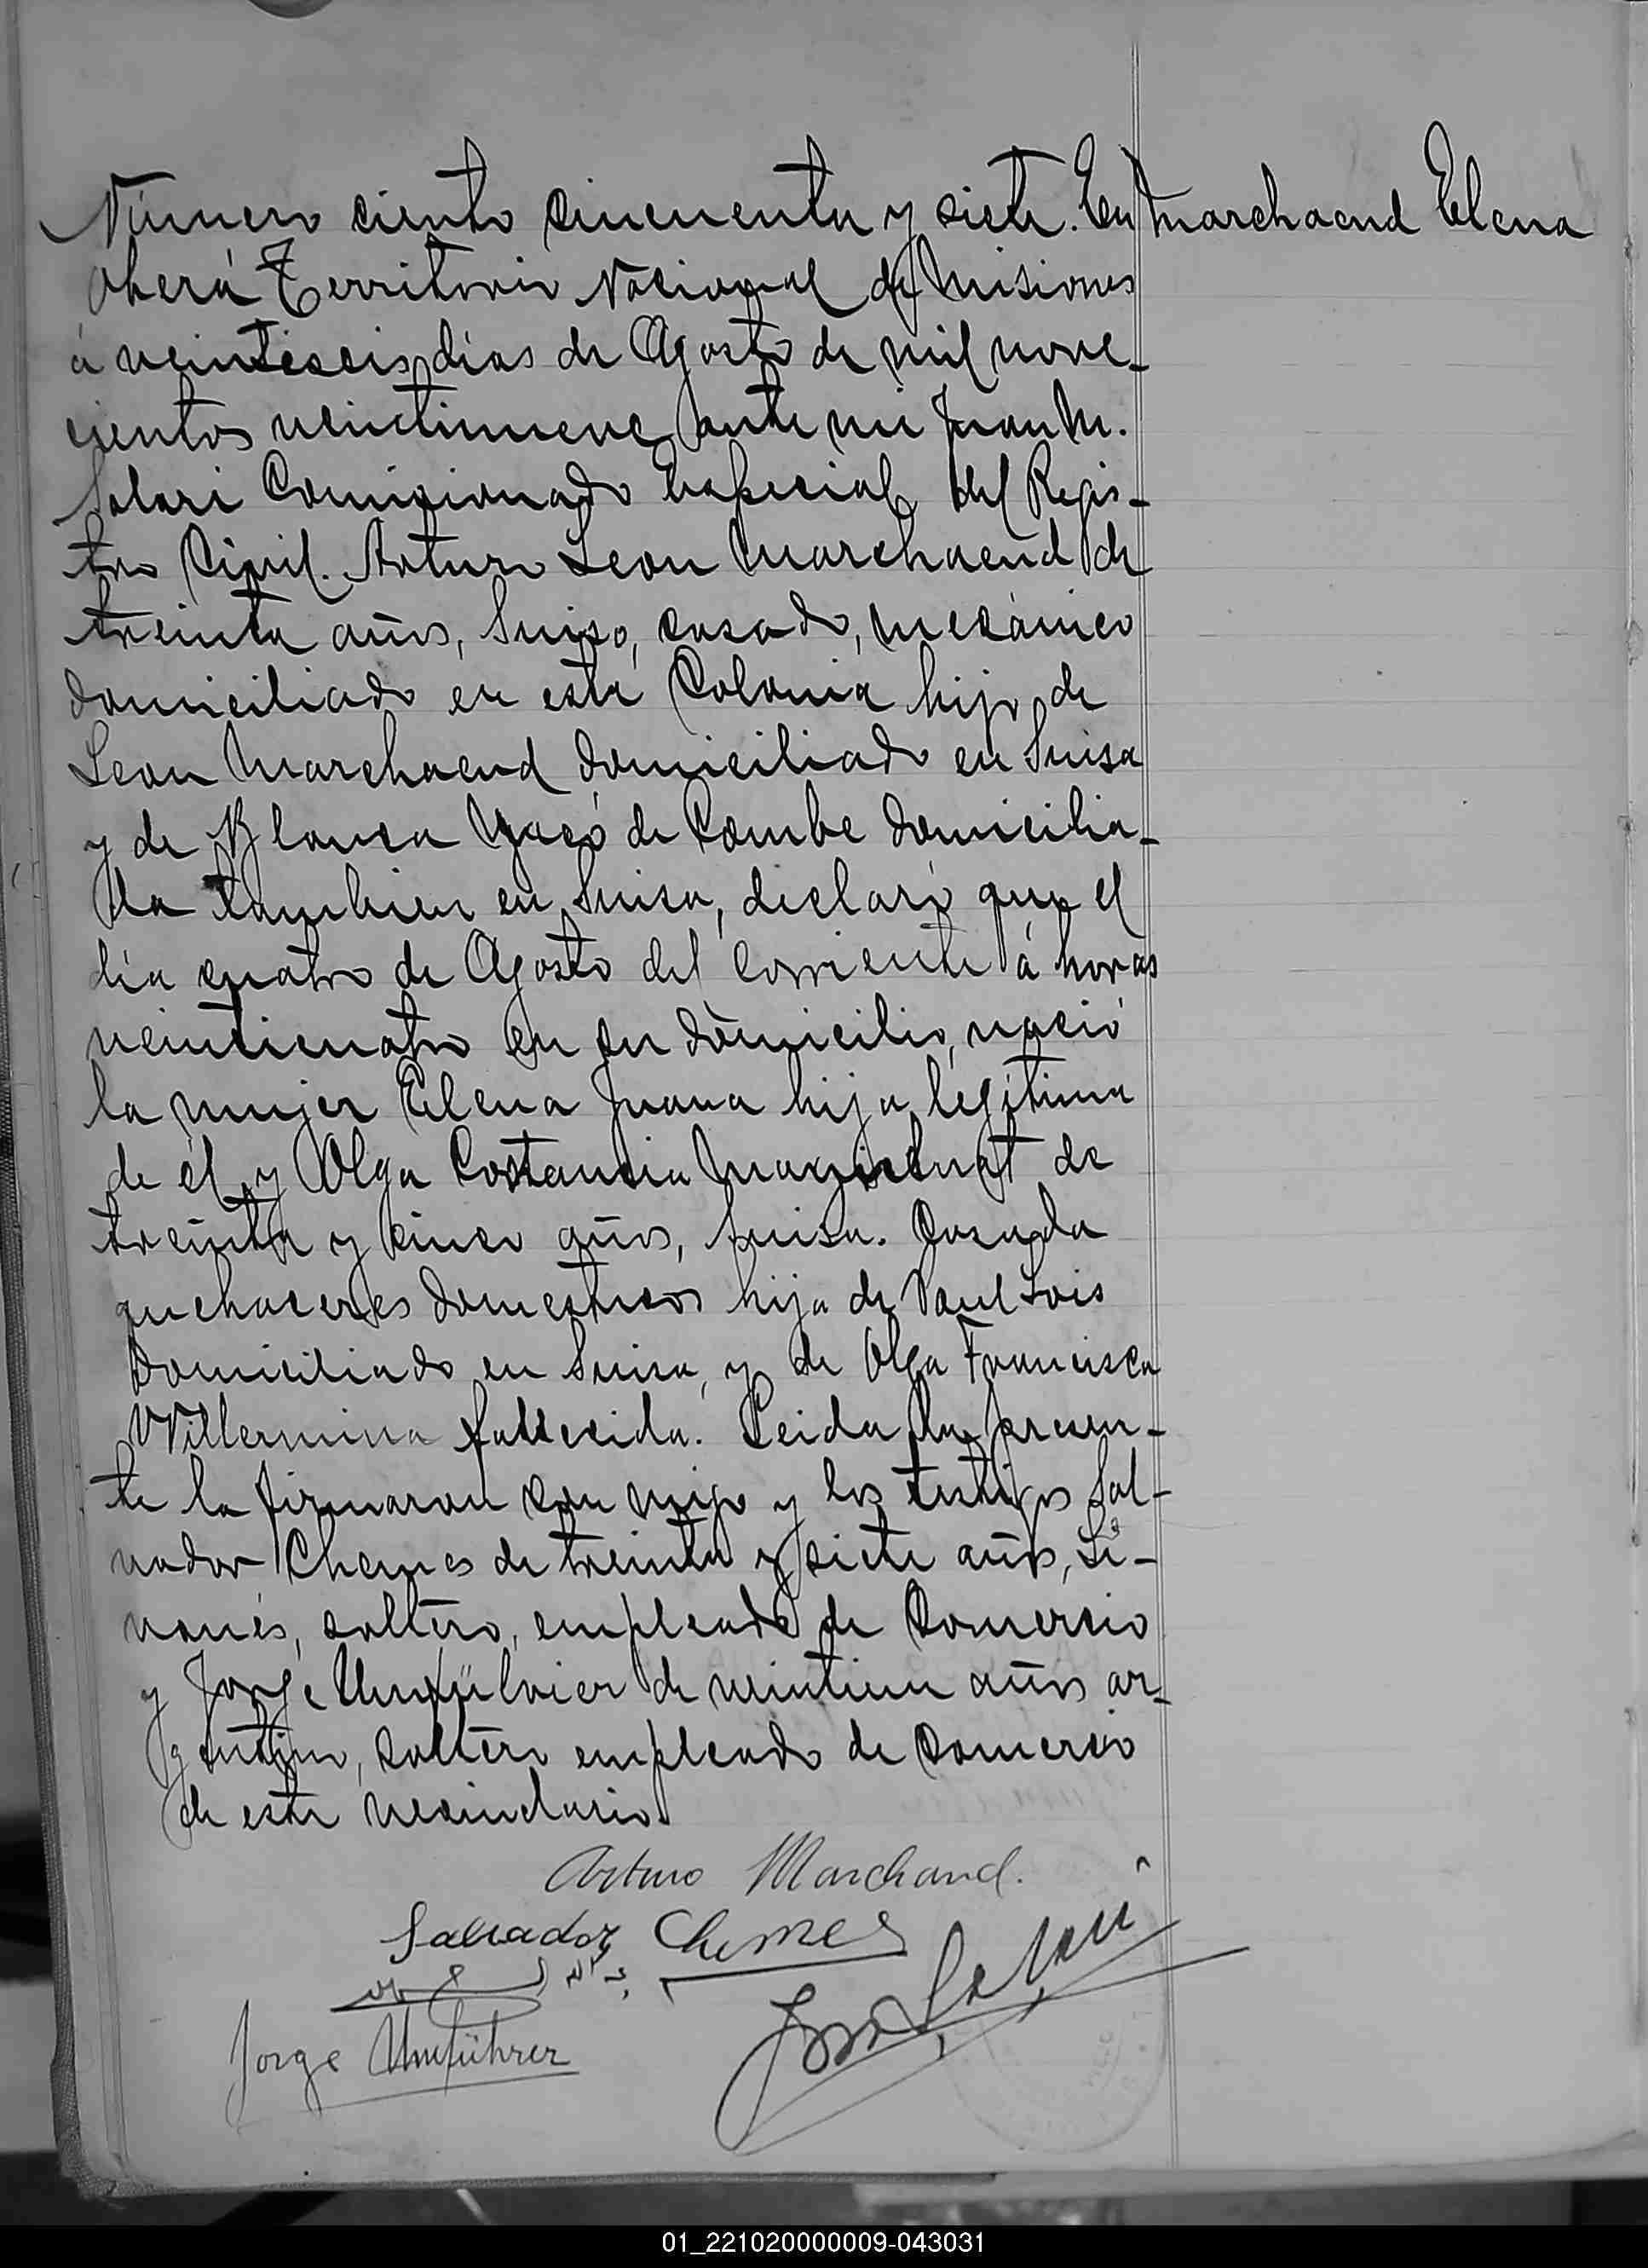 Número ciento cincuenta y siete. En
Marchaend Elena
Oberá Territorio Nacional de Misiones
á veintiseis dias de Agosto de mil nove-
cientos veintinueve ante mi Juan M.
Solari Comisionado Especial del Regis-
tro Civil. Arturo Leon Marchaend de
treinta años, Suiso, casado, mecánico
domiciliado en esta Colonia hijo de
Leon Marchaend domiciliado en Suisa
y de Blanca de Combe domicilia-
da tambien en Suisa, declaró que el
dia cuatro de Agosto del corriente á horas
veinticuatro en su domicilio, nació
la mujer Elena Juana hija legítima
de él y Olga Costansia de
treinta y cinco años, suisa. Casada
quehaceres domesticos hija de Paul Lois
domiciliado en Suisa, y de Olga Francisca
Willermina fallecida. Leida la presen-
te la firmaron con migo y los testigos Sal-
vador Chemes de treinta y siete años, Li-
vanés, soltero, empleado de Comercio
y Jorge de veintiun años ar-
gentino, soltero empleado de Comercio
de este vecindario.
Arturo Marchand.
Salvador Chemes
Jorge Umführer